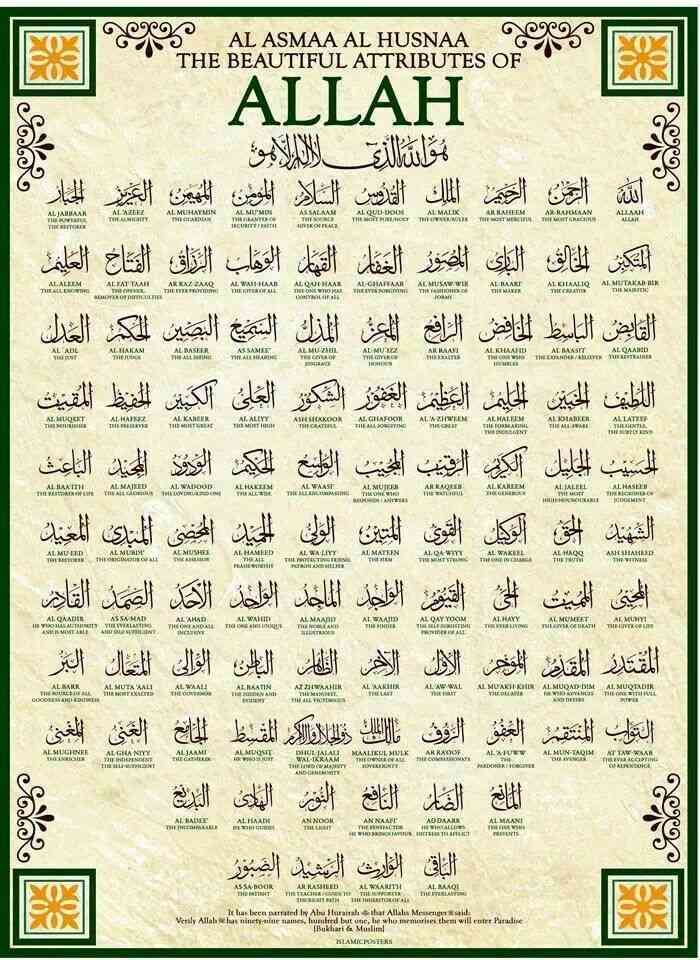 AL ASMAA AL HUSNAA
THE BEAUTIFUL ATTRIBUTES OF
ALLAH
هو الله الذي لا اله الا هو
الله
ALLAAH
ALLAH
الرحمن
AR-RAHMAAN
THE MOST GRACIOUS
الرحيم
AR RAHEEM
THE MOST MERCIFUL
الملك
AL MALIK
THE OWNER/RULER
القدوس
AL QUD-DOOS
THE MOST PURE/HOLY
السلام
AS SALAAM
THE SOURCE
GIVER OF PEACE
المؤمن
AL MU'MIN
THE GRANTER OF
SECURITY / FAITH
المهيمن
AL MUHAYMIN
THE GUARDIAN
العزيز
AL 'AZEEZ
THE ALMIGHTY
الجبار
AL JABBAAR
THE POWERFUL
THE RESTORER
المتكبر
AL MUTAKAB-BIR
THE MAJESTIC
الخالق
AL KHAALIQ
THE CREATOR
البارئ
AL-BAARI'
THE MAKER
المصور
AL MUSAW-WIR
THE FASHIONER OF
FORMS
الغفار
AL-GHAFFAAR
THE EVER FORGIVING
القهار
AL QAH-HAAR
THE ONE WHO HAS
CONTROL OF ALL
الوهاب
AL WAH-HAAB
THE GIVER OF ALL
الرزاق
AR RAZ-ZAAQ
THE EVER PROVIDING
الفتاح
AL FAT-TAAH
THE OPENER,
REMOVER OF DIFFICULTIES
العليم
AL ALEEM
THE ALL KNOWING
القابض
AL QAABID
THE RESTRAINER
الباسط
AL BAASIT
THE EXPANDER / RELIEVER
الخافض
AL KHAAFID
THE ONE WHO
HUMBLES
الرافع
AR RAAFI
THE EXALTER
المعز
AL-MU'IZZ
THE GIVER OF
HONOUR
المذل
AL MU-ZHIL
THE GIVER OF
DISGRACE
السميع
AS SAMEE'
THE ALL HEARING
البصير
AL BASEER
THE ALL SEEING
الحكم
AL HAKAM
THE JUDGE
العدل
AL 'ADL
THE JUST
اللطيف
AL LATEEF
THE GENTLE,
THE SUBTLY KIND
الخبير
AL KHABEER
THE ALL-AWARE
الحليم
AL HALEEM
THE FORBEARING
THE INDULGENT
العظيم
AL 'A-ZHWEEM
THE GREAT
الغفور
AL GHAFOOR
THE ALL FORGIVING
الشكور
ASH SHAKOOR
THE GRATEFUL
العلي
AL ALIYY
THE MOST HIGH
الكبير
AL KABEER
THE MOST GREAT
الحفيظ
AL HAFEEZ
THE PRESERVER
المقيت
AL MUQEET
THE NOURISHER
الحسيب
AL HASEEB
THE RECKONER OF
JUDGEMENT
الجليل
AL JALEEL
THE MOST
HIGH/HONOURABLE
الكريم
AL KAREEM
THE GENEROUS
الرقيب
AR RAQEEB
THE WATCHFUL
المجيب
AL MUJEEB
THE ONE WHO
RESPONDS / ANSWERS
الواسع
AL WAASI'
THE ALL ENCOMPASSING
الحكيم
AL HAKEEM
THE ALL WISE
الودود
AL WADOOD
THE LOVING/KIND ONE
المجيد
AL MAJEED
THE ALL GLORIOUS
الباعث
AL BAA'ITH
THE RESTORER OF LIFE
الشهيد
ASH SHAHEED
THE WITNESS
الحق
AL HAQQ
THE TRUTH
الوكيل
AL WAKEEL
THE ONE IN CHARGE
القوي
AL QA-WIYY
THE MOST STRONG
المتين
AL MATEEN
THE FIRM
الولي
AL WA-LIYY
THE PROTECTING FRIEND,
PATRON AND HELPER
الحميد
AL HAMEED
THE ALL
PRAISEWORTHY
المحصي
AL MUHSEE
THE ASSESSOR
المبدئ
AL MUBDI'
THE ORIGINATOR OF ALL
المعيد
AL MU EED
THE RESTORER
المحيي
AL MUHYI
THE GIVER OF LIFE
المميت
AL MUMEET
THE GIVER OF DEATH
الحي
AL HAYY
THE EVER LIVING
القيوم
AL QAY YOOM
THE SELF-SUBSISTING
PROVIDER OF ALL
الواجد
AL WAAJID
THE FINDER
الماجد
AL MAAJID
THE NOBLE AND
ILLUSTRIOUS
الواحد
AL WAHID
THE ONE AND UNIQUE
الأحد
AL 'AHAD
THE ONE AND ALL
INCLUSIVE
الصمد
AS SA-MAD
THE EVERLASTING
AND SELF SUFFICIENT
القادر
AL QAADIR
HE WHO HAS AUTHORITY
AND IS MOST ABLE
المقتدر
AL MUQTADIR
THE ONE WITH FULL
POWER
المقدم
AL MUQAD-DIM
HE WHO ADVANCES
AND DEFERS
المؤخر
AL MU'AKH-KHIR
THE DELAYER
الأول
AL 'AW-WAL
THE FIRST
الآخر
AL 'AAKHIR
THE LAST
الظاهر
AZ ZHWAAHIR
THE MANIFEST,
THE ALL VICTORIOUS
الباطن
AL BAATIN
THE HIDDEN AND
EVIDENT
الوالي
AL WAALI
THE GOVERNOR
المتعال
AL MUTA 'AALI
THE MOST EXALTED
البر
AL BARR
THE SOURCE OF ALL
GOODNESS AND KINDNESS
التواب
AT TAW-WAAB
THE EVER ACCEPTING
OF REPENTANCE
المنتقم
AL MUN-TAQIM
THE AVENGER
العفو
AL 'A-FUWW
THE
PARDONER / FORGIVER
الرؤوف
AR RA'OOF
THE COMPASSIONATE
مالك الملك
MAALIKUL MULK
THE OWNER OF ALL
SOVEREIGNTY
ذو الجلال والإكرام
DHUL-JALALI
WAL-IKRAAM
THE LORD OF MAJESTY
AND GENEROSITY
المقسط
AL MUQSIT
HE WHO IS JUST
الجامع
AL JAAMI
THE GATHERER
الغني
AL GHA-NIYY
THE INDEPENDENT
THE SELF-SUFFICIENT
المغني
AL MUGHNEE
THE ENRICHER
المانع
AL MAANI
THE ONE WHO
PREVENTS
الضار
AD DAARR
HE WHO ALLOWS
DISTRESS TO AFFLICT
النافع
AN NAAFI'
THE BENEFACTOR
HE WHO BRINGS FAVOUR
النور
AN NOOR
THE LIGHT
الهادي
AL HAADI
HE WHO GUIDES
البديع
AL BADEE'
THE INCOMPARABLE
الباقي
AL BAAQI
THE EVERLASTING
الوارث
AL WAARITH
THE SUPPORTER
THE INHERITOR OF ALL
الرشيد
AR RASHEED
THE TEACHER / GUIDE TO
THE RIGHT PATH
الصبور
AS-SA-BOOR
THE PATIENT
It has been narrated by Abu Hurairah that Allahs Messenger said:
Verily Allah has ninety-nine names, hundred but one, he who memorises them will enter Paradise
[Bukhari & Muslim]
ISLAMICPOSTERS